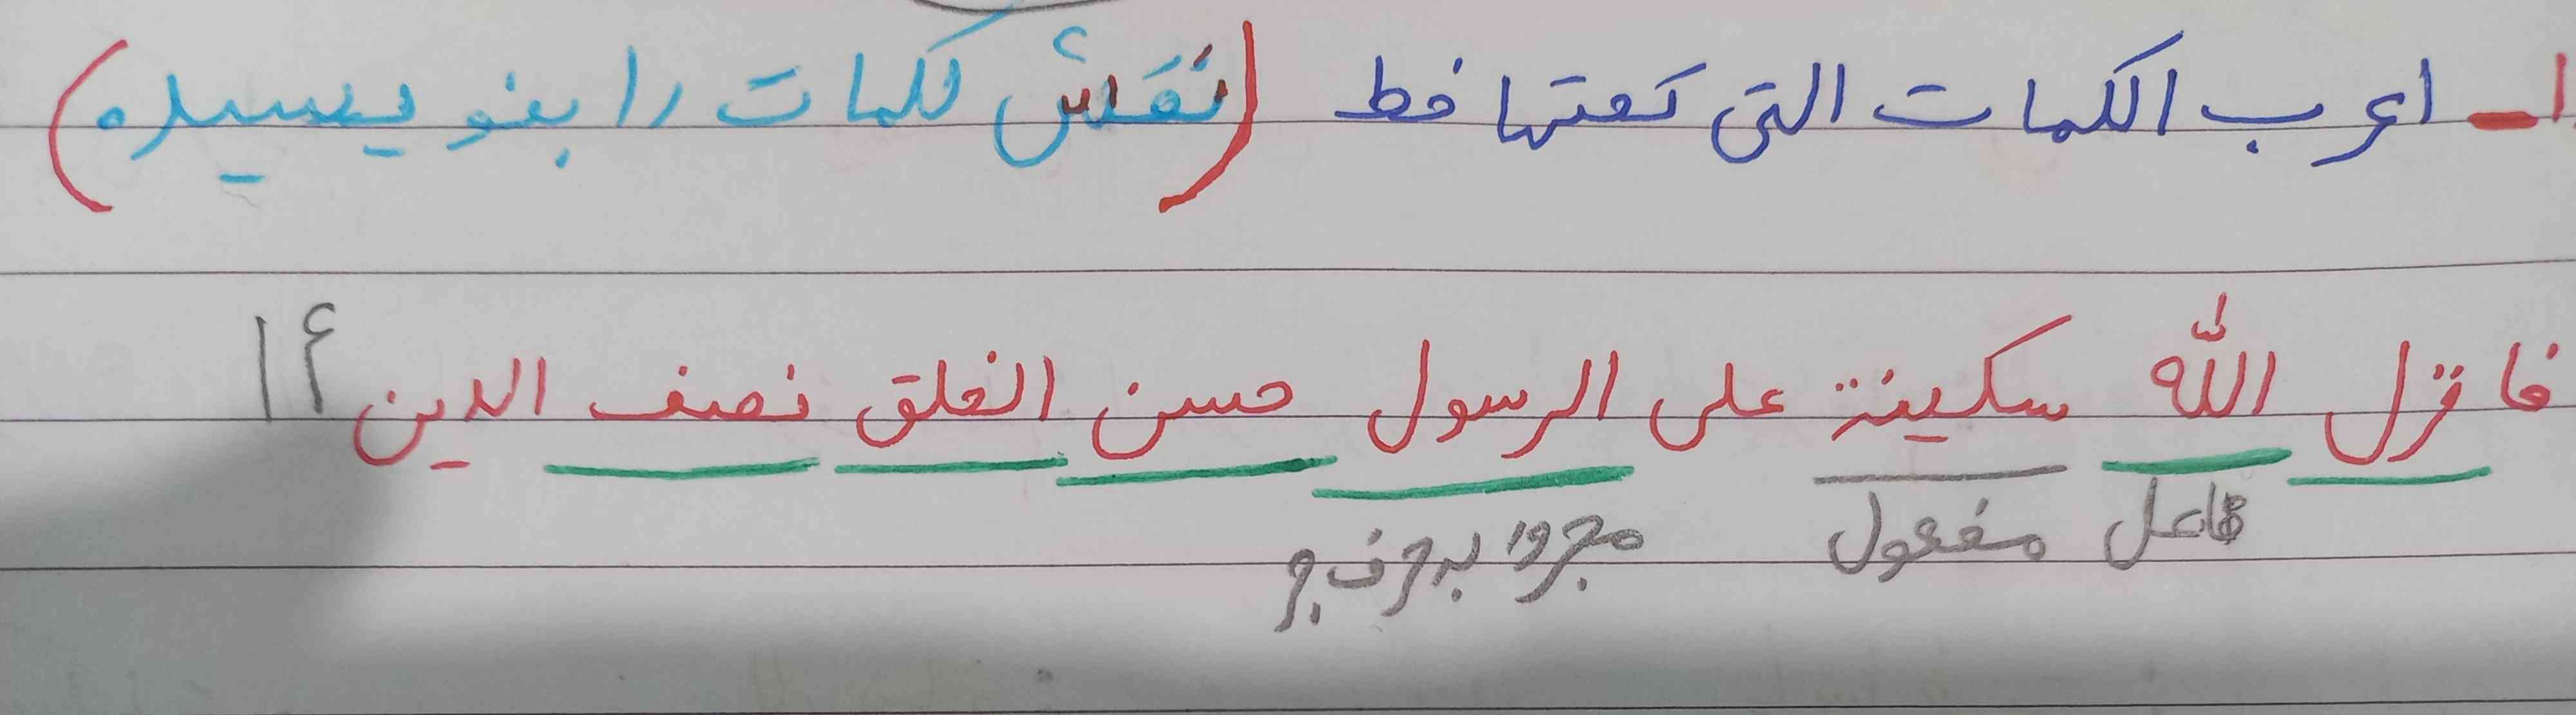 ۱ــ اعرب الکلمات التی تحتها خط (نقش کلمات را بنویسید.)
فانزل اللّه سکینة علی الرسول حسن الخلق نصف الدین
فاعل مفعول مجرور بحرف جر